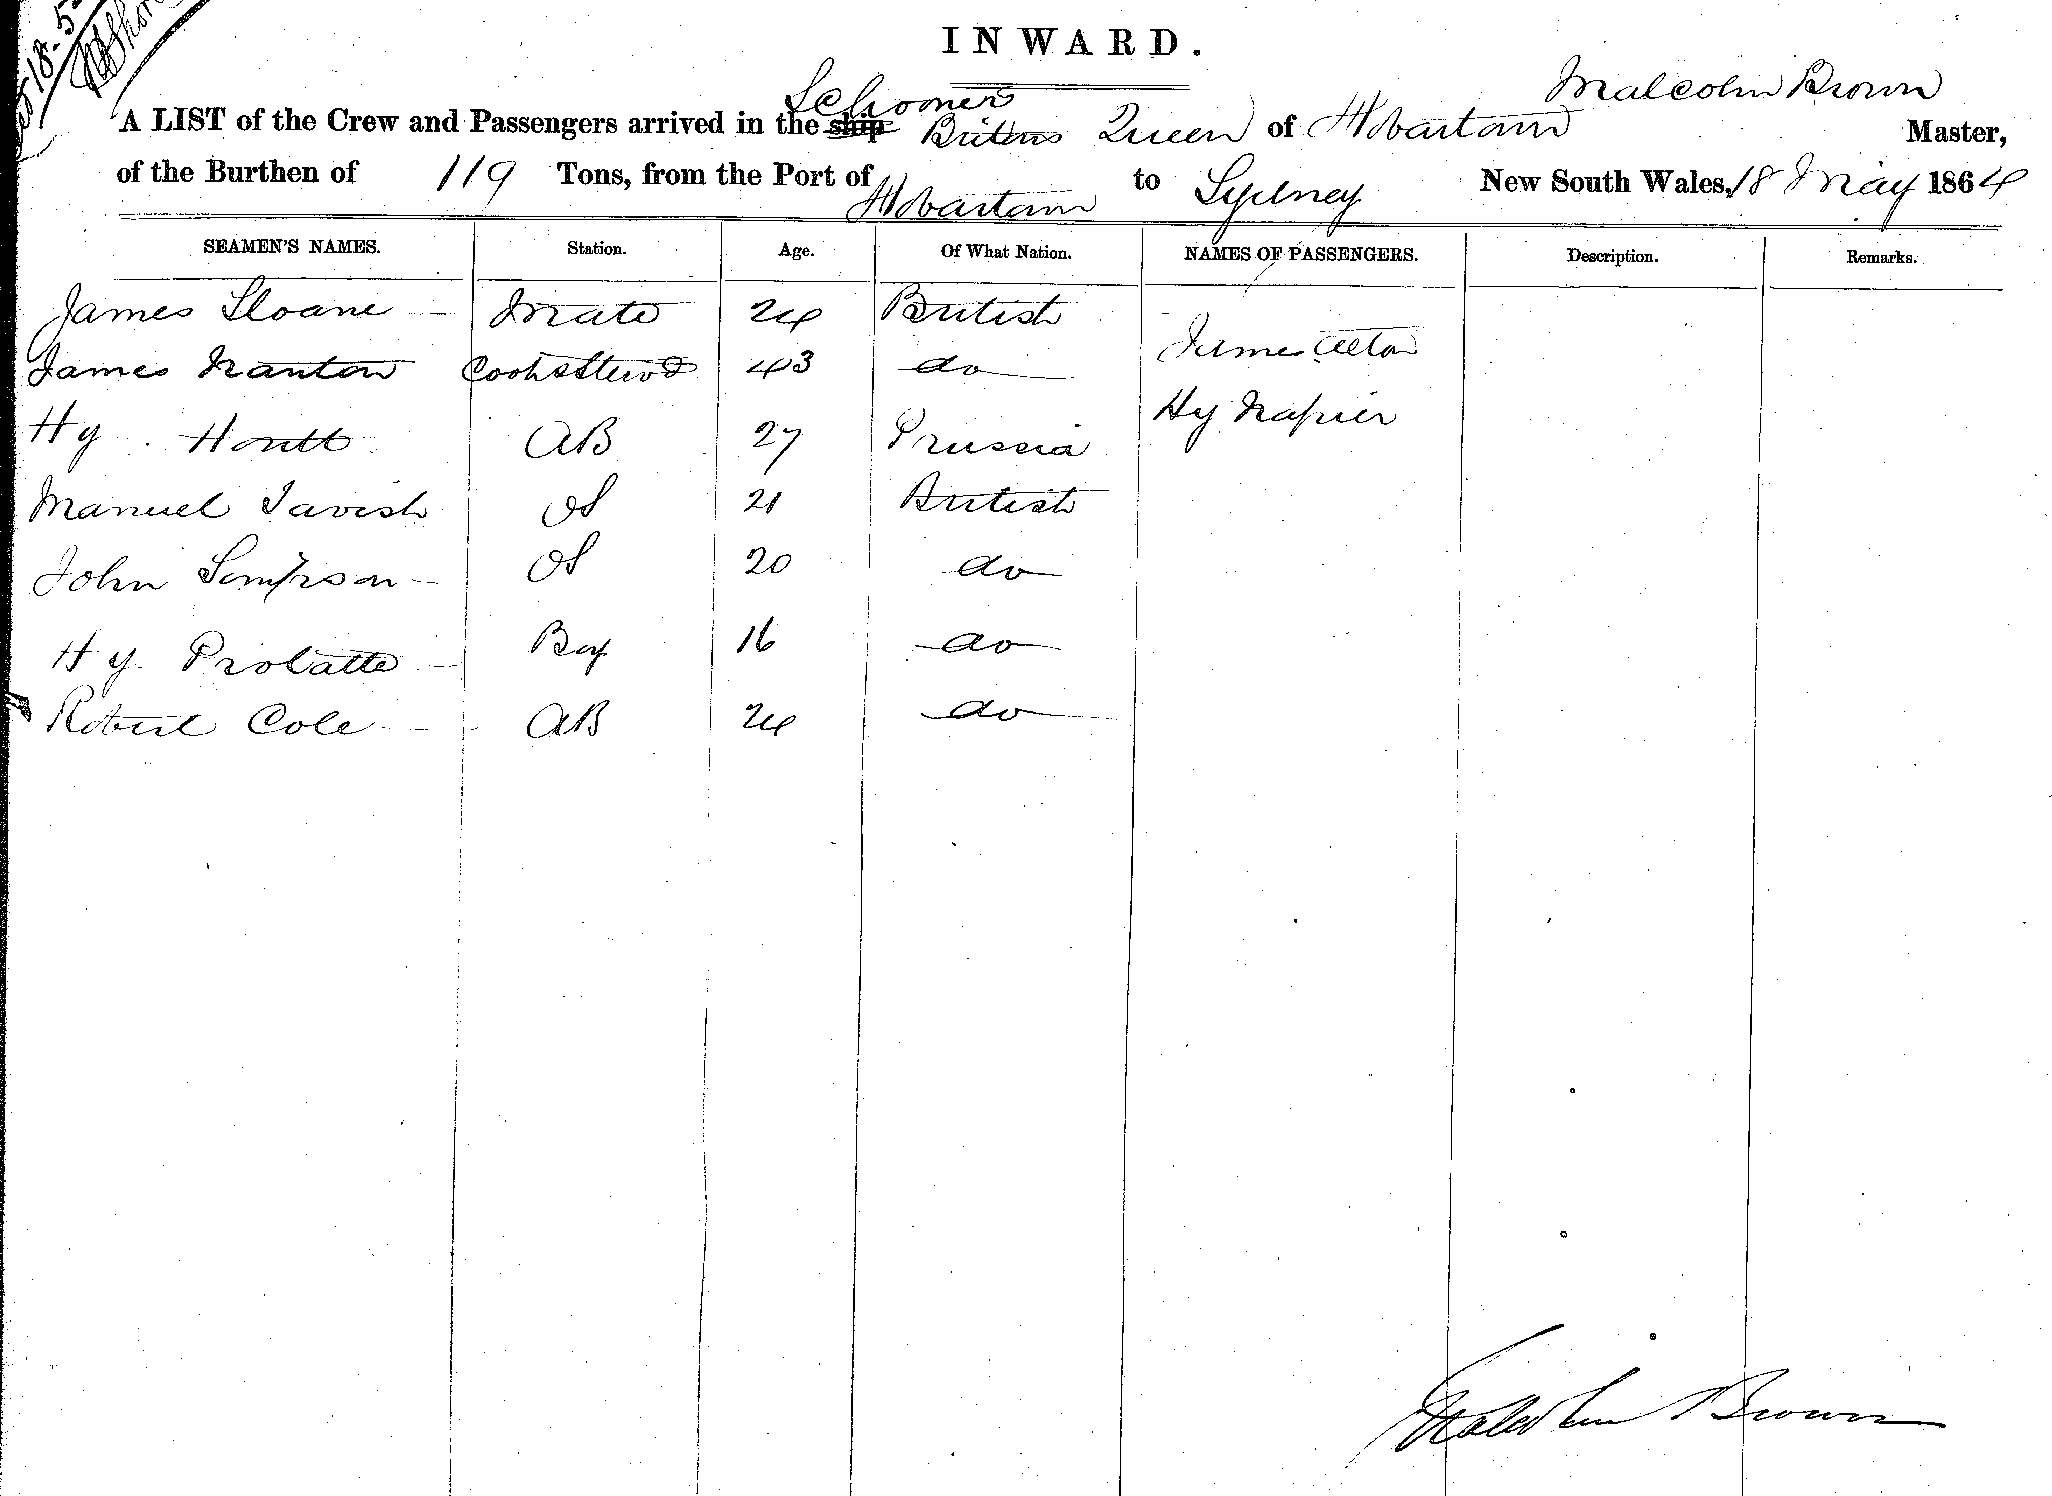 INWARD.
Malcolm Brown
Schooner
A LIST of the Crew and Passengers arrived in the ship Britons Queen of Hobartown Master,
of the Burthen of 119 Tons, from the Port of Hobartown to Sydney New South Wales, 18 May 1864
SEAMEN'S NAMES. Station. Age. Of What Nation. NAMES OF PASSENGERS. Description. Remarks.
James Sloane Mate 24 British
James Alton
James Nanton Cook & Stewd 43 do
Hy Napier
Hy AB 27 Prussia
Manuel Tavish OS 21 British
John Simpson OS 20 do
Hy Boy 16 do
Robert Cole AB 24 do
Malcolm Brown